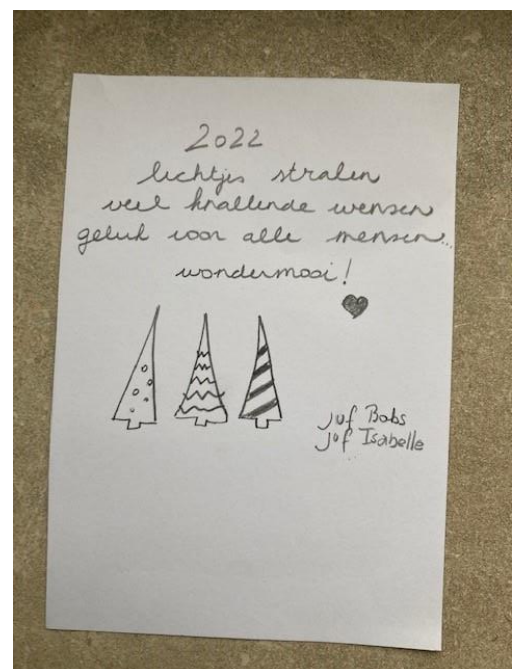 2022
lichtjes stralen
veel knallende wensen
geluk voor alle mensen...
wondermooi!
juf Babs
juf Isabelle